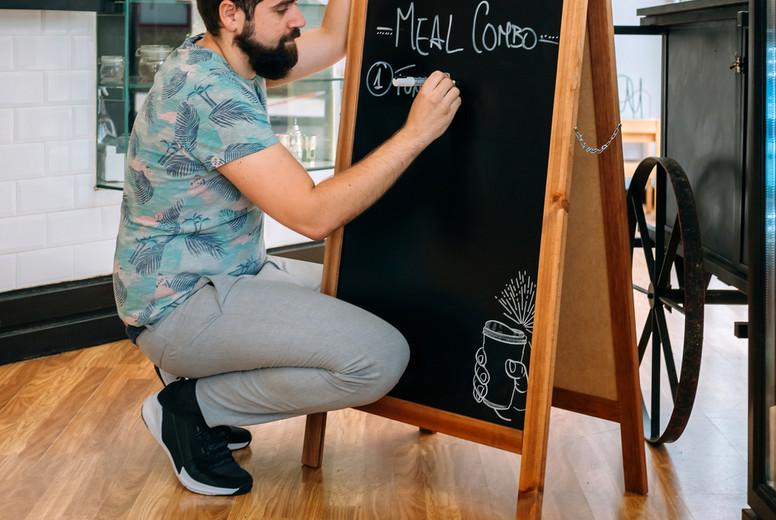 -MEAL COMBO-
1